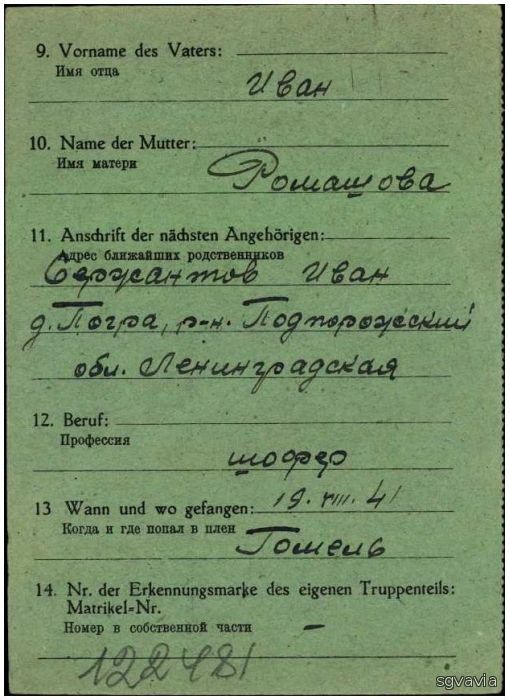 9. Vorname des Vaters:
Имя отца
Иван
10. Name der Mutter:
Имя матери
Ромашова
11. Anschrift der nächsten Angehörigen:
Адрес ближайших родственников
Сержантов Иван
д. Погра, р-н. Подпорожский
обл. Ленинградская
12. Beruf:
Профессия
шофер
13 Wann und wo gefangen: 19. VIII. 41
Когда и где попал в плен
Гомель
14. Nr. der Erkennungsmarke des eigenen Truppenteils:
Matrikel-Nr.
Номер в собственной части –
122481
sgvavia